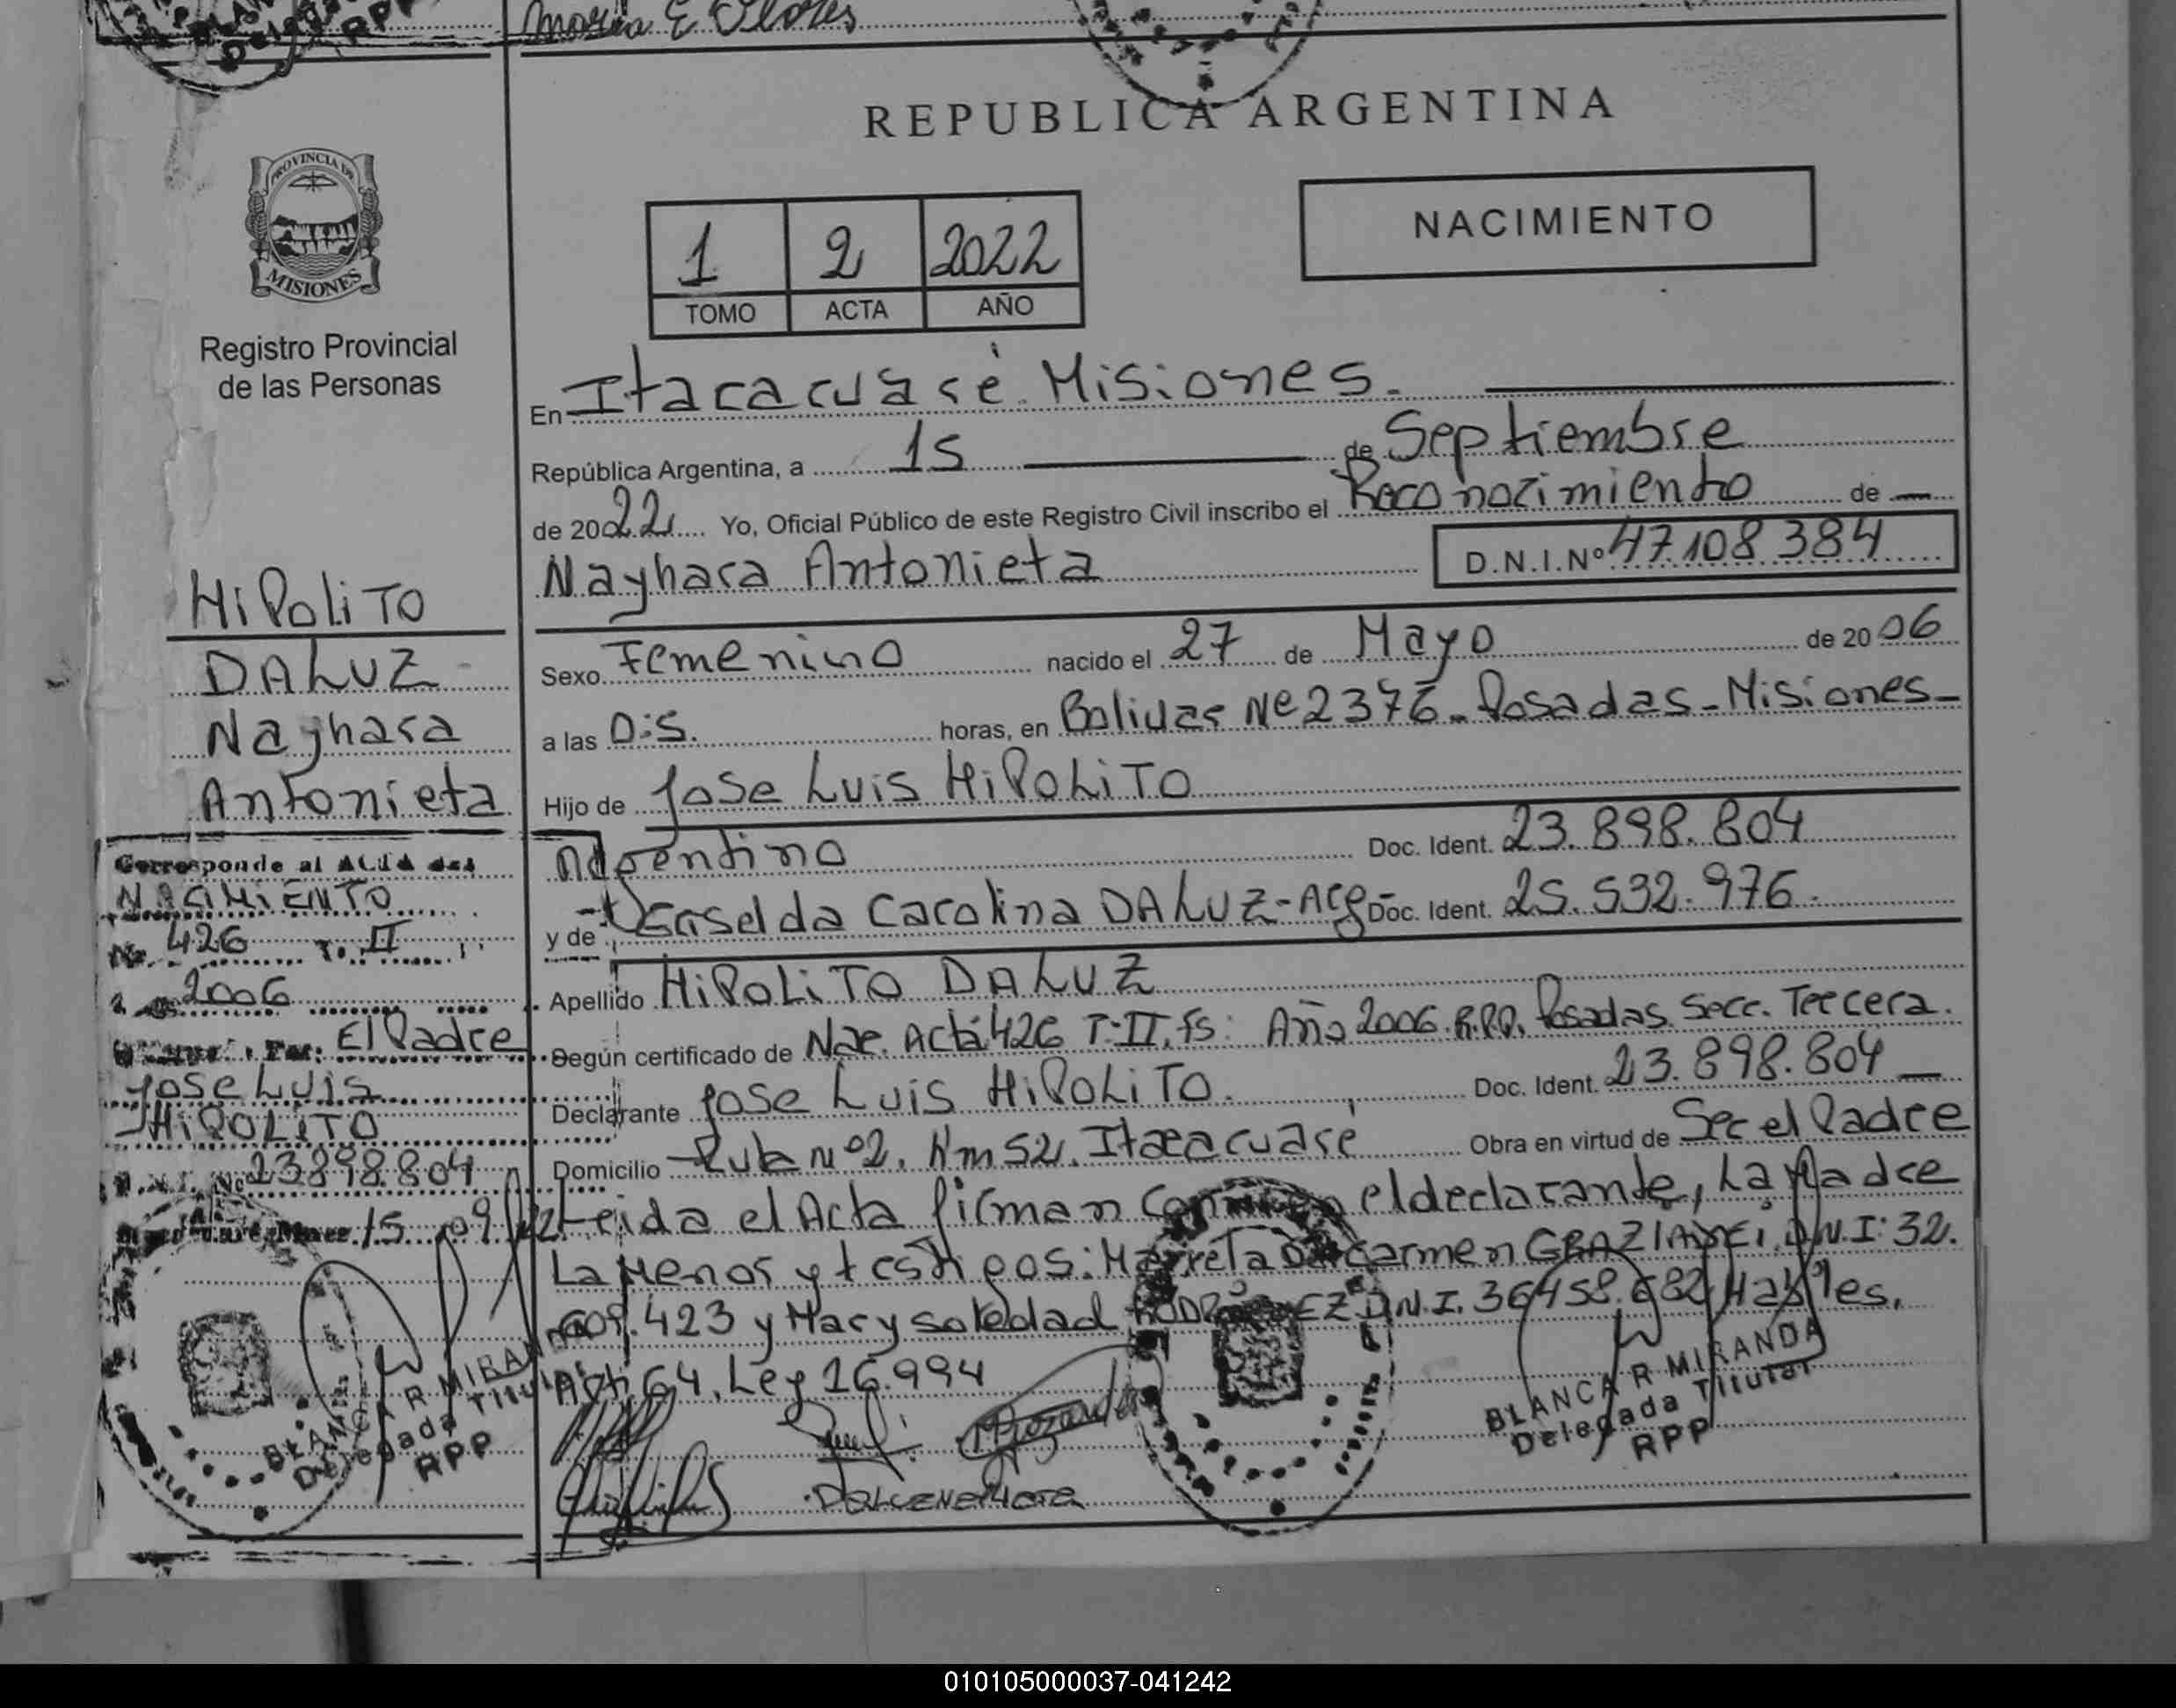 Maria E Flores
REPUBLICA ARGENTINA
PROVINCIA DE
MISIONES
Registro Provincial
de las Personas
1 2 2022
TOMO ACTA AÑO
NACIMIENTO
En Itacaruaré Misiones.
República Argentina, a 15 de Septiembre
de 2022 Yo, Oficial Público de este Registro Civil inscribo el Reconocimiento de —
Nayhara Antonieta D.N.I.Nº 47.108.384
Sexo Femenino nacido el 27 de Mayo de 2006
a las 0:5. horas, en Bolivar Nº 2376 - Posadas - Misiones -
Hijo de Jose Luis HiPoLiTO
Argentino Doc. Ident. 23.898.804
y de Griselda Carolina DALUZ - Arg Doc. Ident. 25.532.976.
Apellido HiPoLiTO DALUZ
Según certificado de Nac. Acta 426 T-II, fs: Año 2006. R.P.P. Posadas Secc. Tercera.
Declarante Jose Luis HiPoLiTO. Doc. Ident. 23.898.804 —
Domicilio Ruta Nº2, Km 52, Itacaruaré Obra en virtud de Ser el Padre
Leida el Acta firman el declarante, La Madre
La Menor y testigos: Del Carmen D.N.I: 32.
423 y Mary soledad RODRIGUEZ D.N.I. 36458.682 Habiles.
Art. 64, Ley 26.994
BLANCA R MIRANDA
Delegada Titular
RPP
HiPoLiTO
DALUZ
Nayhara
Antonieta
Corresponde al ACTA de:
NACIMIENTO
No. 426 T. II
2006
Por: El Padre
Jose Luis
HiPOLiTO
D.N.I. No 23898.804
15 09 22
BLANCA R MIRANDA
Delegada Titular
RPP
010105000037-041242